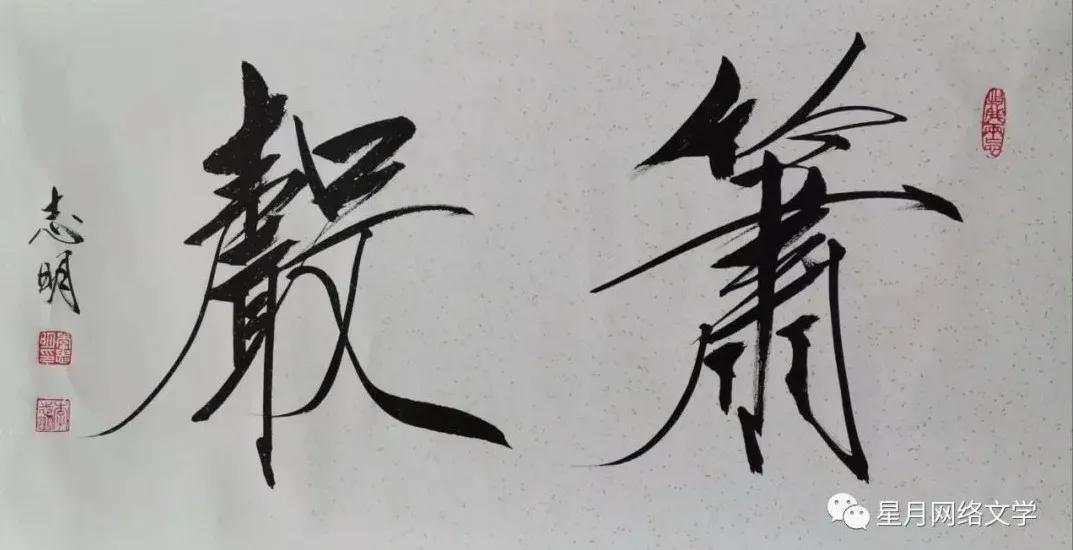 簫聲
志明
星月网络文学